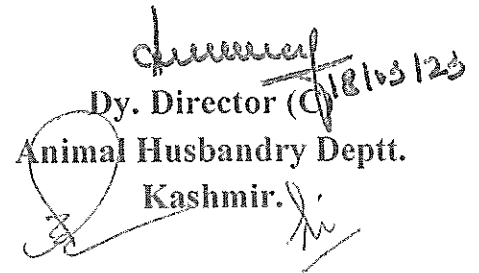 18/03/23
Dy. Director (C)
Animal Husbandry Deptt.
Kashmir.